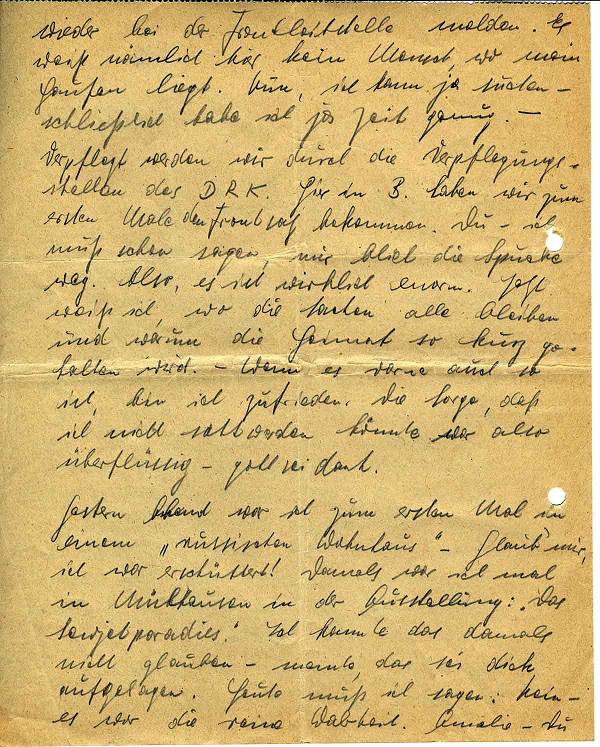 wieder bei der Frontleitstelle melden. Es
weiß nämlich hier kein Mensch, wo mein
Haufen liegt. Nun, ich kann ja suchen –
schließlich habe ich ja Zeit genug. –
Verpflegt werden wir durch die Verpflegungs-
stellen des DRK. Hier in B. haben wir zum
ersten Male den Frontsatz bekommen. Du – ich
muß schon sagen, mir blieb die Spucke
weg. Also, es ist wirklich enorm. Jetzt
weiß ich, wo die Sachen alle bleiben
und warum die Heimat so kurz ge-
halten wird. – Wenn es vorne auch so
ist, bin ich zufrieden. Die Sorge, daß
ich nicht satt werden könnte war also
überflüssig – gott sei dank.
Gestern Abend war ich zum ersten Mal in
einem „russischen Wohnhaus" – Glaub mir,
ich war erschüttert! Damals war ich mal
in Mülhausen in der Ausstellung: „Das
Sowjetparadies." Ich konnte das damals
nicht glauben – meinte, das sei dick
aufgelagen. Heute muß ich sagen: Nein –
es war die reine Wahrheit. Amelie – Du